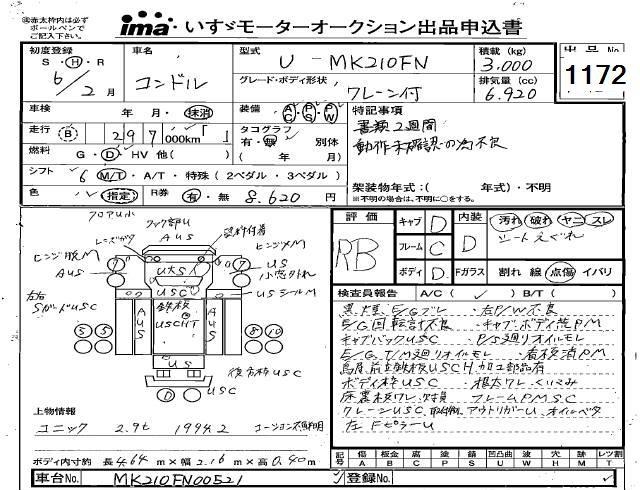 ㊟赤太枠内は必ず
ボールペンで
ご記入下さい。
ima いすゞモーターオークション出品申込書
初度登録
S・H・R
6/2月
車名
コンドル
型式
U - MK210FN
グレード・ボディ形状
クレーン付
積載 (kg)
3.000
排気量 (cc)
6.920
出品No
1172
車検 年・月・抹消
走行 B 297 000km「 」
燃料 G・D・HV 他( )
シフト 6 M/T・A/T・特殊 (2ペダル・3ペダル)
色 指定 R券 有・無 8.620円
装備 AC PS PW
タコグラフ 別体
有・無
( 年 月)
特記事項
書類2週間
動作未確認の為不良
架装物年式:( 年式)・不明
※不明の場合は、不明に○をする。
フロアUホ
ラック部U
AUS
ヒンジ脱M
AUS
ヒンジメM
US
小窓外れ
USシールM
左右
SガードUSC
7
7
U大S
USC
鉄板
USCHT
AUS
AUS
5 5
8 10
US
USC
上物情報
ユニック 2.9t 1994.2
ボディ内寸約 長4.64m×幅2.16m×高0.40m
車台No. MK210FN00521
登録No.
評価
RB
キャブ D
フレーム C
ボディ D
内装 D
汚れ・破れ・ヤニ・スレ
シートえぐれ
Fガラス 割れ 線 点傷 イバリ
検査員報告 A/C( ✓ ) B/T( )
黒煙、E/Gブレ ・右P/W不良
E/G回転計不良 ・キャブ・ボディ荒P/M
キャブバックUSC ・P/S廻りオイルモレ
E/G、T/M廻りオイルモレ ・看板消P/M
ボディ枠USC ・根太ワレ・くいこみ
フレームPMSC
クレーンUSC、アウトリガーU、オイルベタ
左FピラーU
記号 傷 板金 腐 塗 錆 凹凸曲 波 穴 跡 レツ割
A B C P S U W H M T